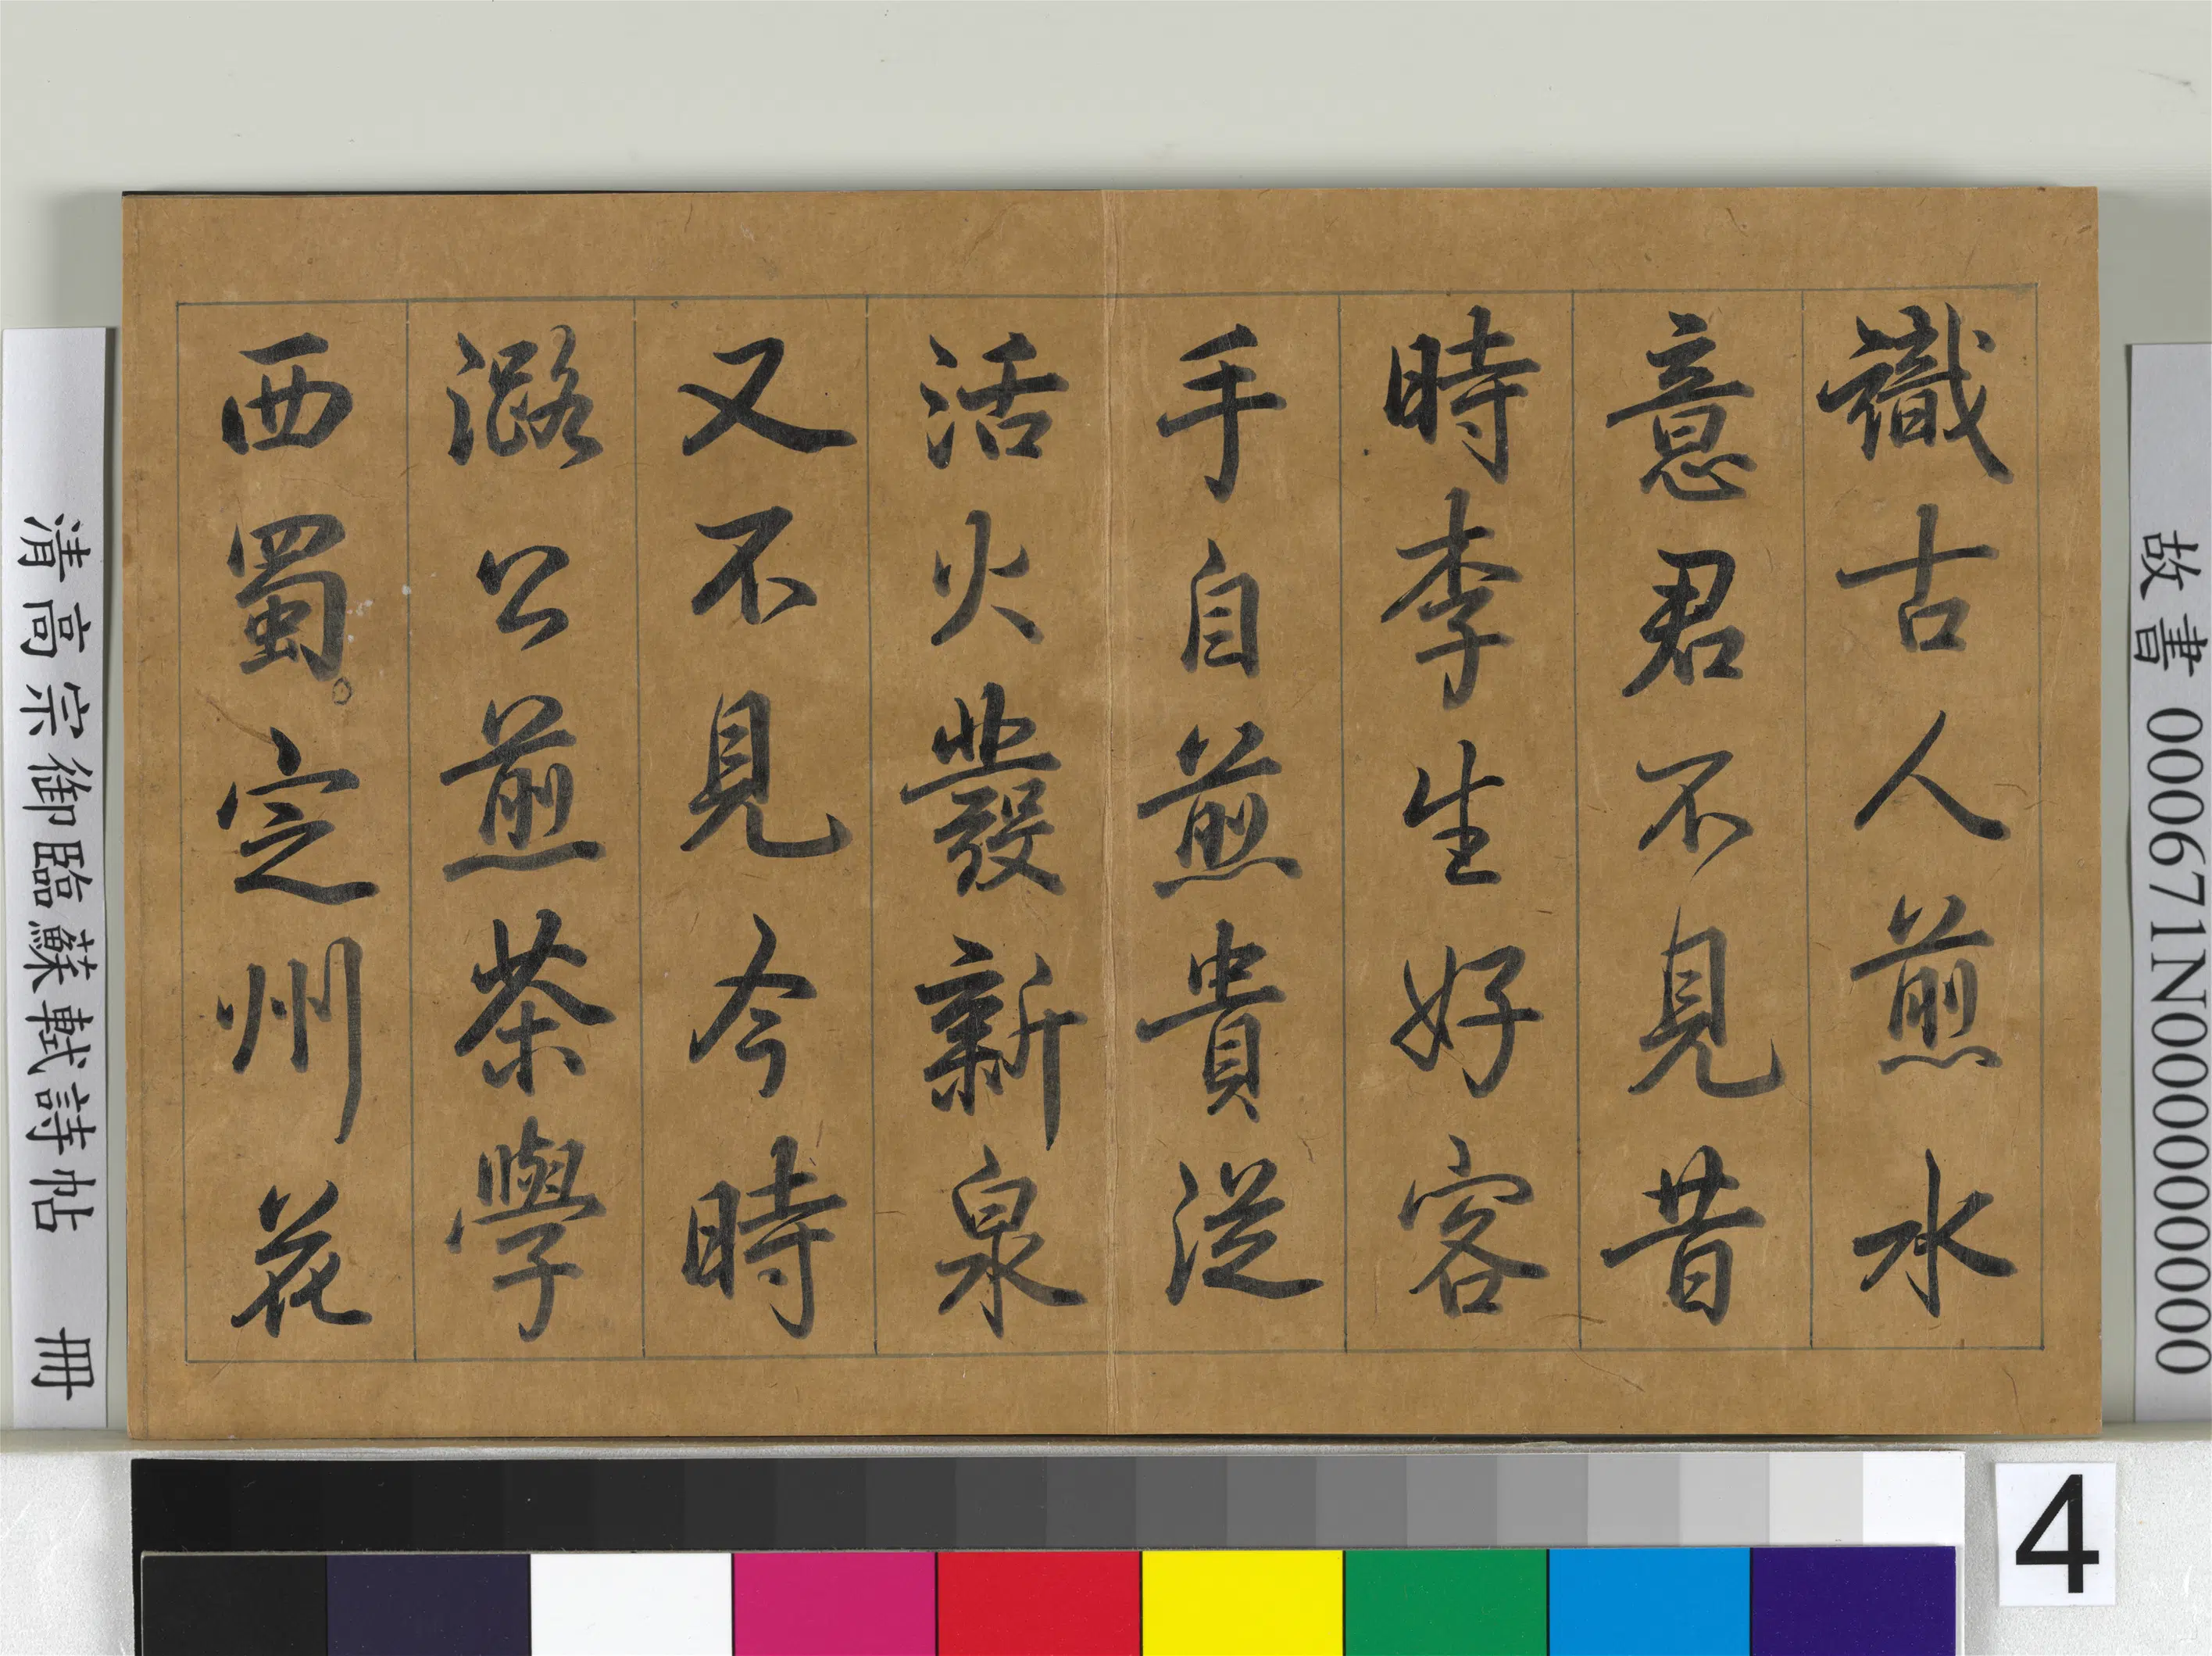 識古人煎水
意君不見昔
時李生好客
手自煎貴從
活火發新泉
又不見今時
潞公煎茶學
西蜀定州花
故書 000671N000000000
清高宗御臨蘇軾詩帖 冊
4